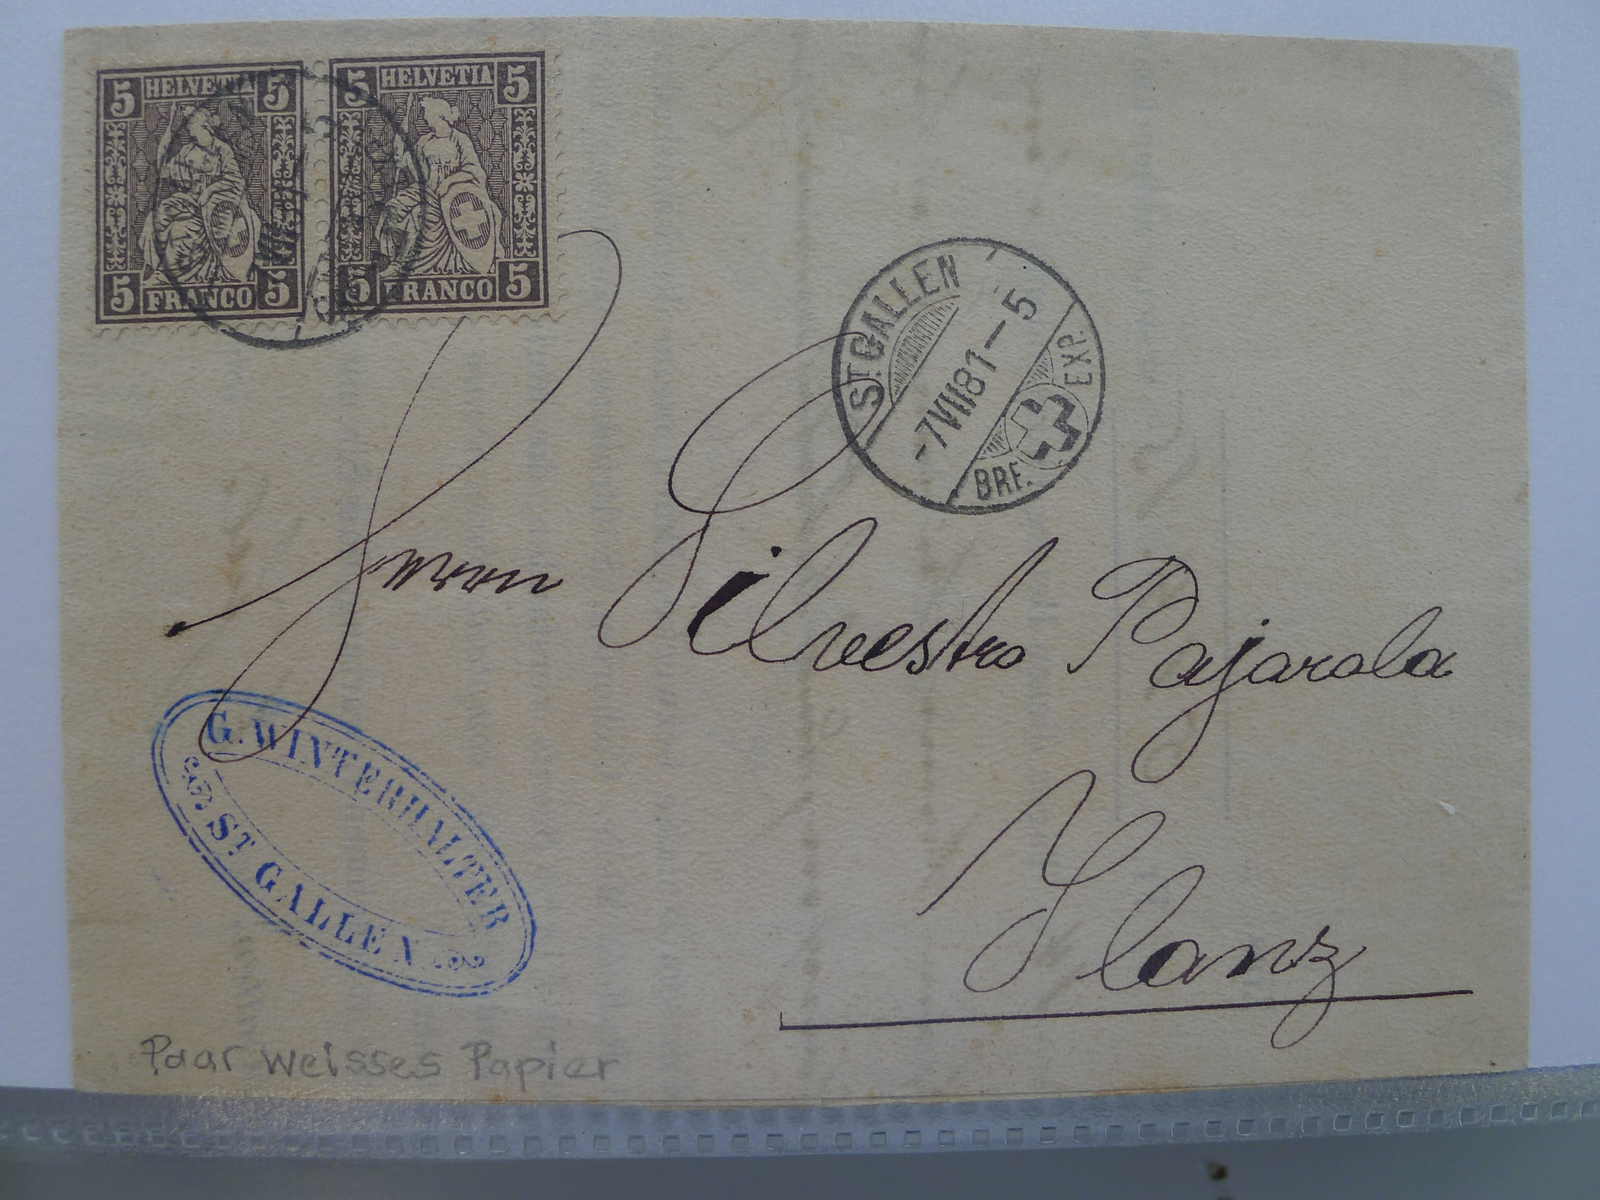 5 HELVETIA 5
5 FRANCO 5
5 HELVETIA 5
5 FRANCO 5
ST. GALLEN
-7 VII 81 - 5
BRF. EXP.
Herrn Silvestro Pajarola
Ilanz
G. WINTERHALTER
ST. GALLEN
Paar weisses Papier